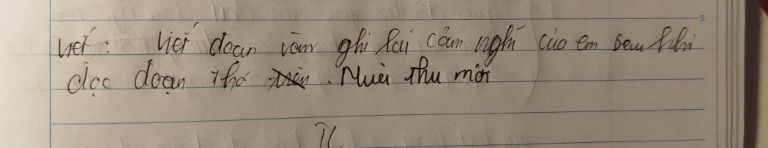 Viết: Viết đoạn văn ghi lại cảm nghĩ của em sau khi
đọc đoạn thơ trên. Mùa thu mới